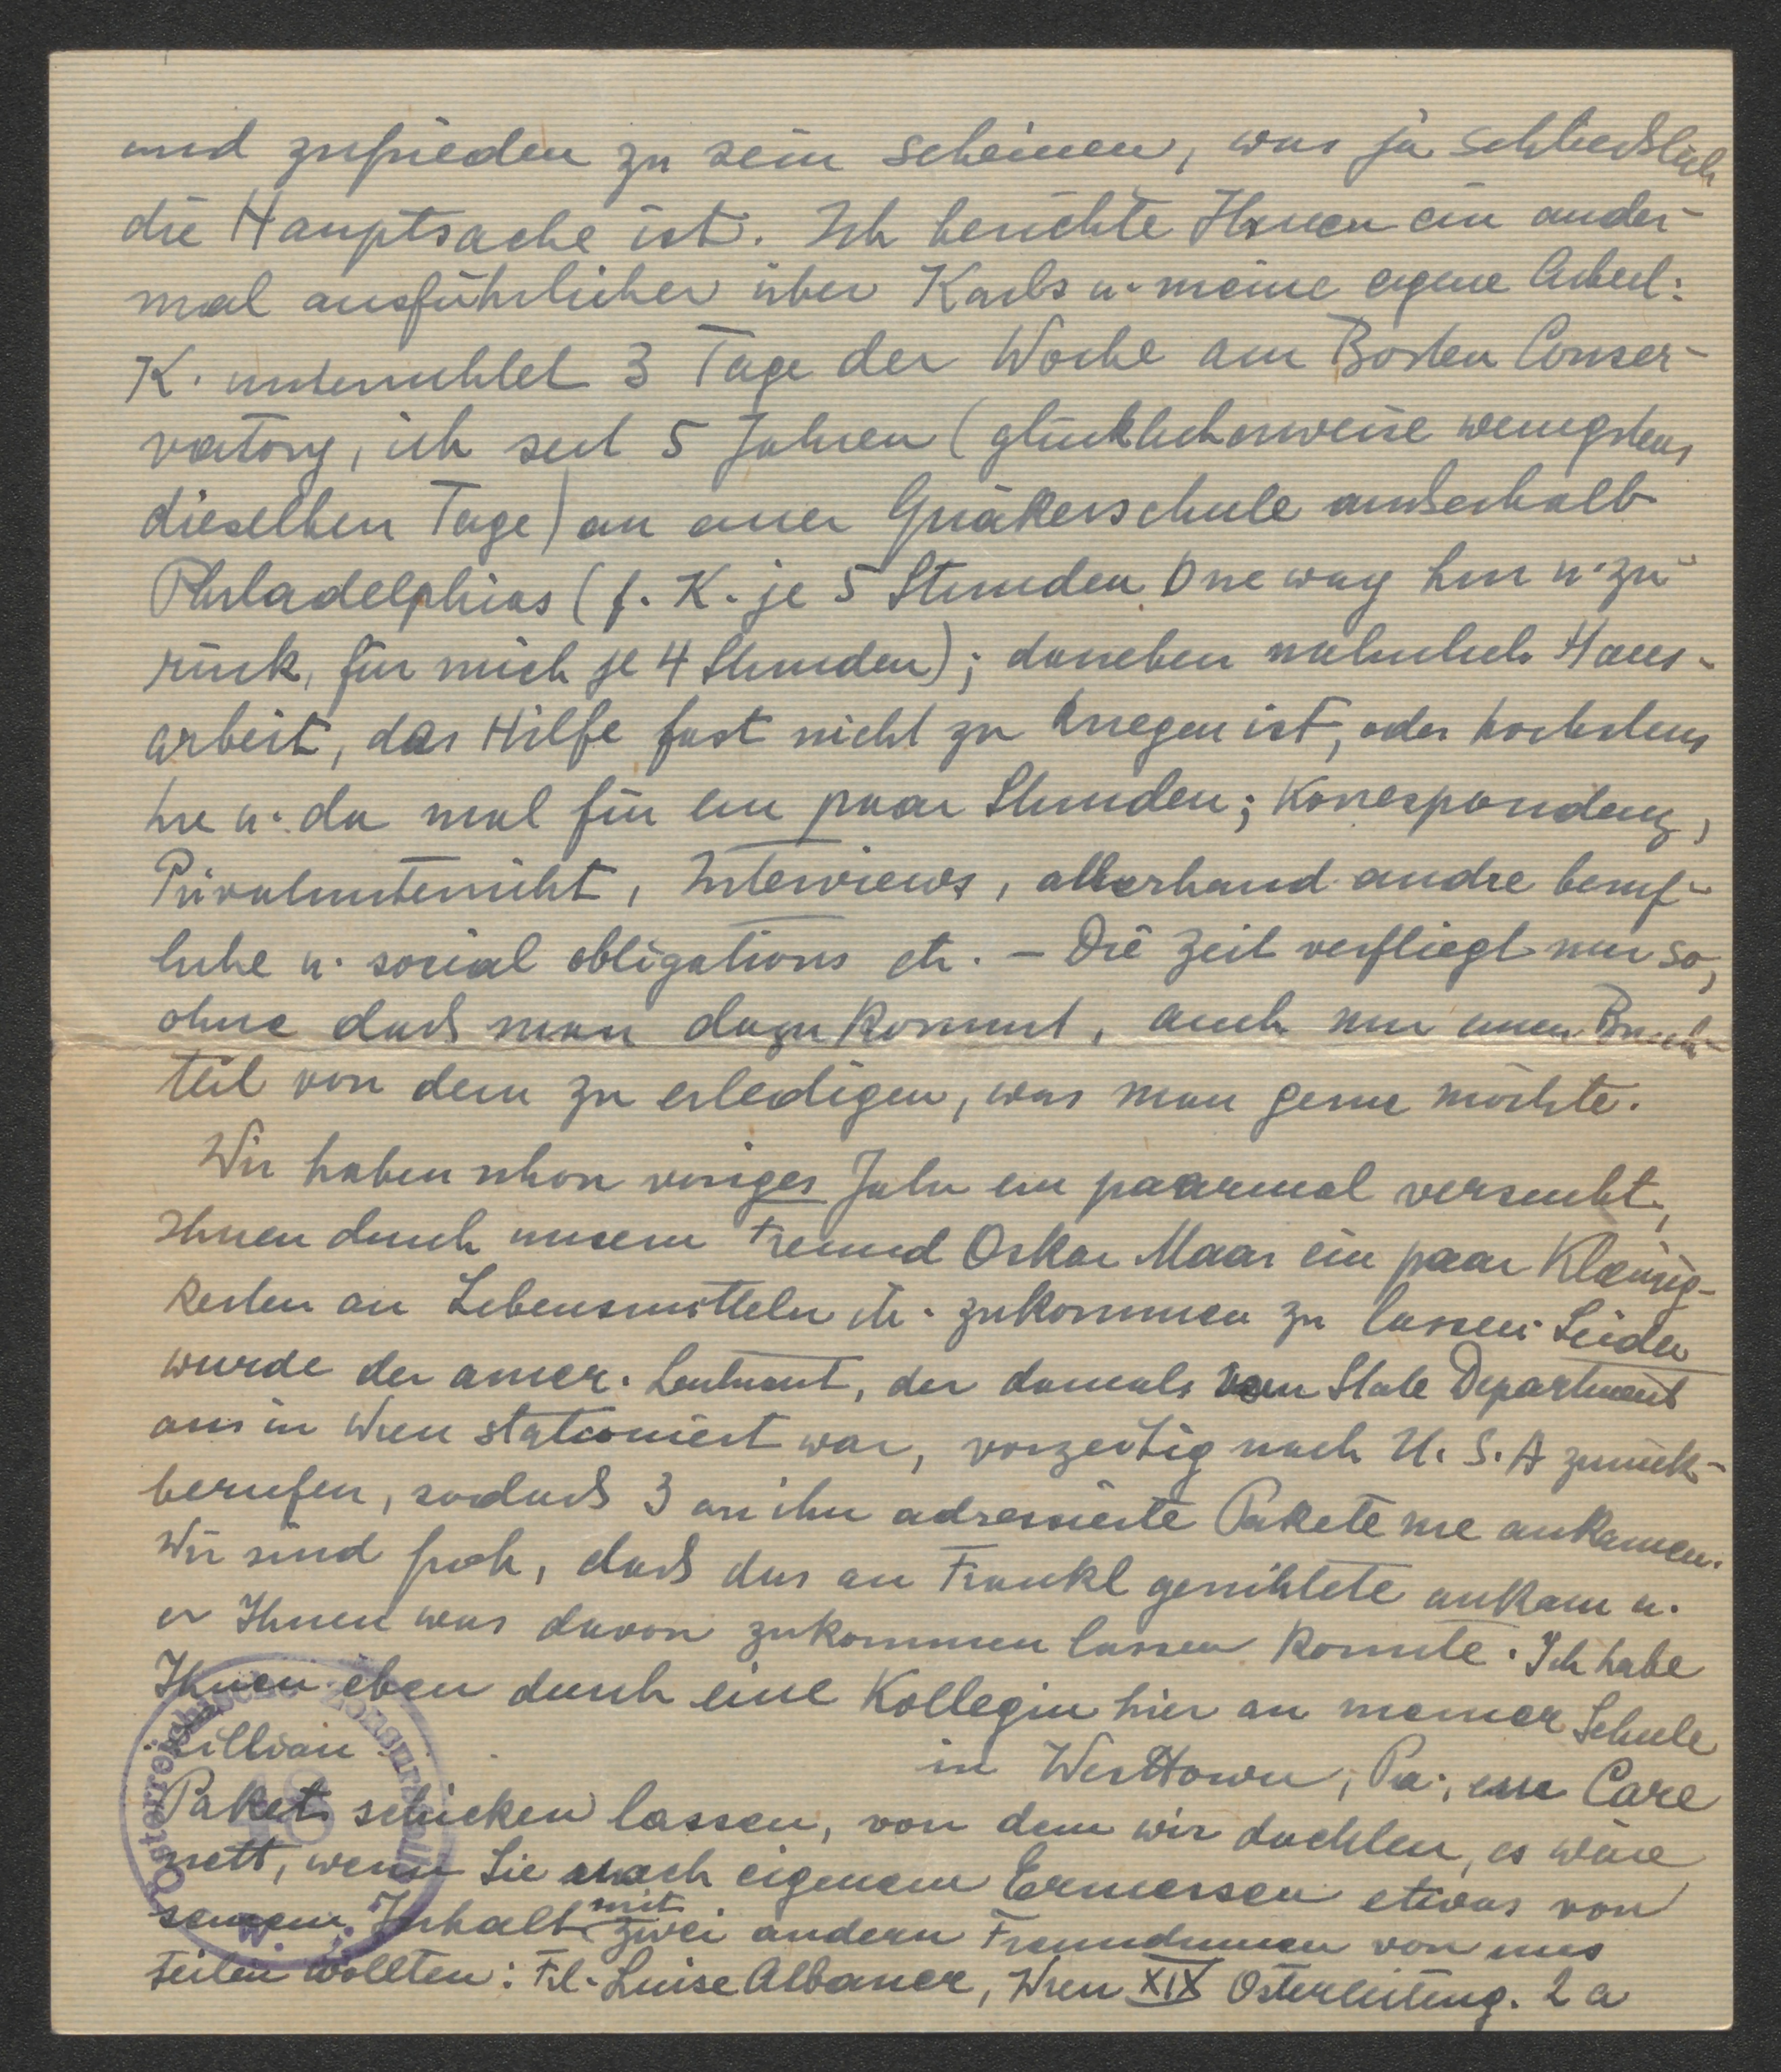 und zufrieden zu sein scheinen, was ja schliesslich
die Hauptsache ist. Ich berichte Ihnen ein ander-
mal ausführlicher über Karls u. meine eigene Arbeit:
K. unterrichtet 3 Tage der Woche am Boston Conser-
vatory, ich seit 5 Jahren (glücklicherweise wenigstens
dieselben Tage) an einer Quäkerschule ausserhalb
Philadelphias (f. K. je 5 Stunden One way hin u. zu
rück, für mich je 4 Stunden); daneben natürlich Haus-
arbeit, das Hilfe fast nicht zu kriegen ist, oder höchstens
hie u. da mal für ein paar Stunden; Korrespondenz,
Privatunterricht, Interviews, allerhand andre beruf-
liche u. social obligations etc. – Die Zeit verfliegt nur so,
ohne dass man dazu kommt, auch nur einen Bruch-
teil von dem zu erledigen, was man gerne möchte.
Wir haben schon voriges Jahr ein paarmal versucht,
Ihnen durch unsern Freund Oskar Maar ein paar Kleinig-
keiten an Lebensmitteln etc. zukommen zu lassen. Leider
wurde der amer. Leutnant, der damals vom State Department
aus in Wien stationiert war, vorzeitig nach U.S.A zurück-
berufen, sodass 3 an ihn adressierte Pakete nie ankamen.
Wir sind froh, dass das an Frankl gerichtete ankam u.
er Ihnen was davon zukommen lassen konnte. Ich habe
Ihnen eben durch eine Kollegin hier an meiner Schule
Lillian
in Westtown, Pa., ein Care
Paket schicken lassen, von dem wir dachten, es wäre
nett, wenn Sie nach eigenem Ermessen etwas von
seinem Inhalt mit zwei andern Freundinnen von uns
teilen wollten: Frl. Luise Albaner, Wien XIX Osterleiteng. 2 a
Österreichische Zensurstelle
W.